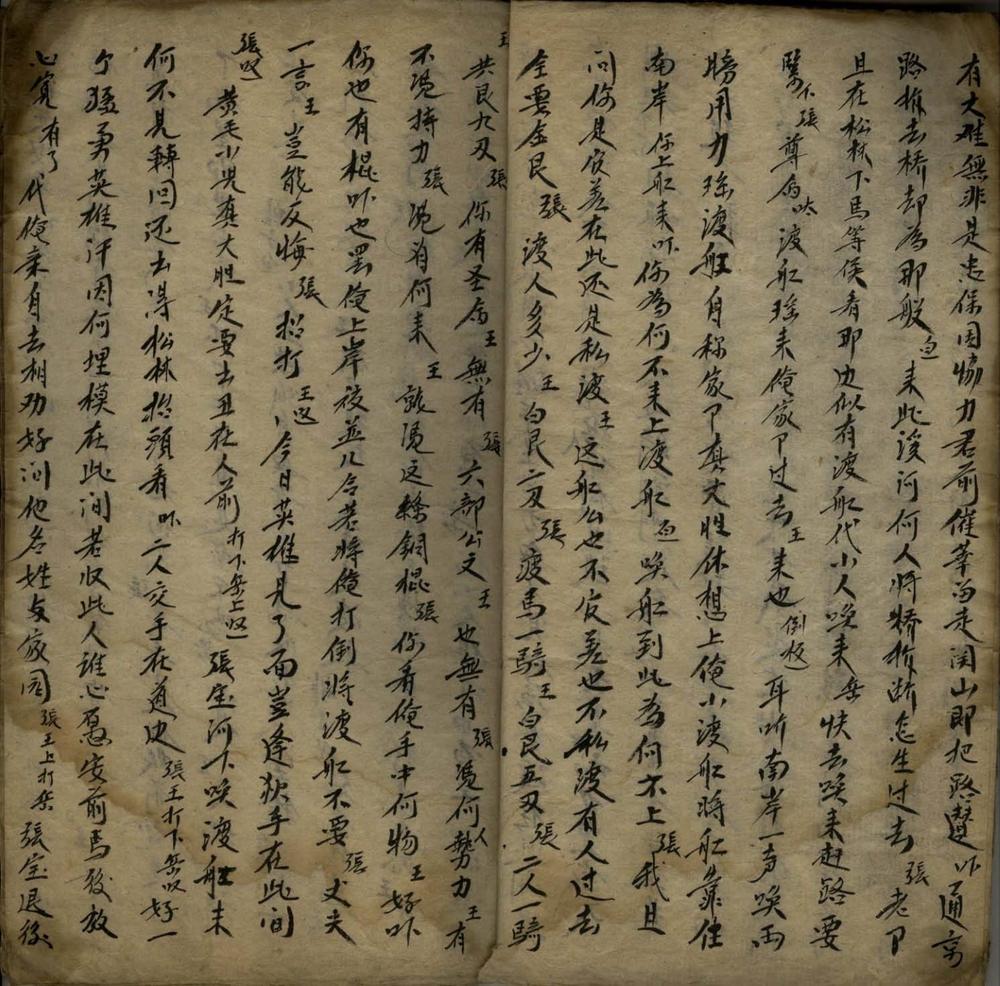 有大难無非是患保国協力君前催葦沿走関山即把路蹚吓通京
路拆去桥却為那般白来此該河何人將桥拆断怎生过去張老卩
且在松林下馬等侯看那边似有渡舡代小人唤来岳快去唤来赶路要
緊下張尊爲吙渡舡瑶来俺家卩过去王来也倒板耳听南岸一声唤両
膀用力瑶渡舡自称家卩真大胆休想上俺小渡舡將舡靠住
南岸你上舡来吓你為何不来上渡舡白唤舡到此為何不上張我且
问你是官差在此还是私渡王这舡公也不官差也不私渡有人过去
全要金艮張渡人多少王白艮二刄張渡馬一騎王白艮五刄張二人一騎
王共艮九刄張你有圣爲王無有張六部公文王也無有張凴何人勢力王有
不凴持力張凴着何来王就凴这條銅棍張你看俺手中何物王好吓
你也有棍吓也罢俺上岸被並几合若將俺打倒將渡舡不要張丈夫
一言王豈能反悔張招打王叹今日英雄見了面豈逢狄手在此间
張叹黄毛小児真大胆定要去丑在人前打下岳上叹張宝河下唤渡舡未
何不見轉回还去得松林抬頭看吓二人交手在道边張王打下岳叹好一
个猛勇英雄汗因何埋模在此间若収此人誰心愿安前馬後放
心寛有了代俺乗自去相劝好问他名姓与家园張王上打岳張宝退後